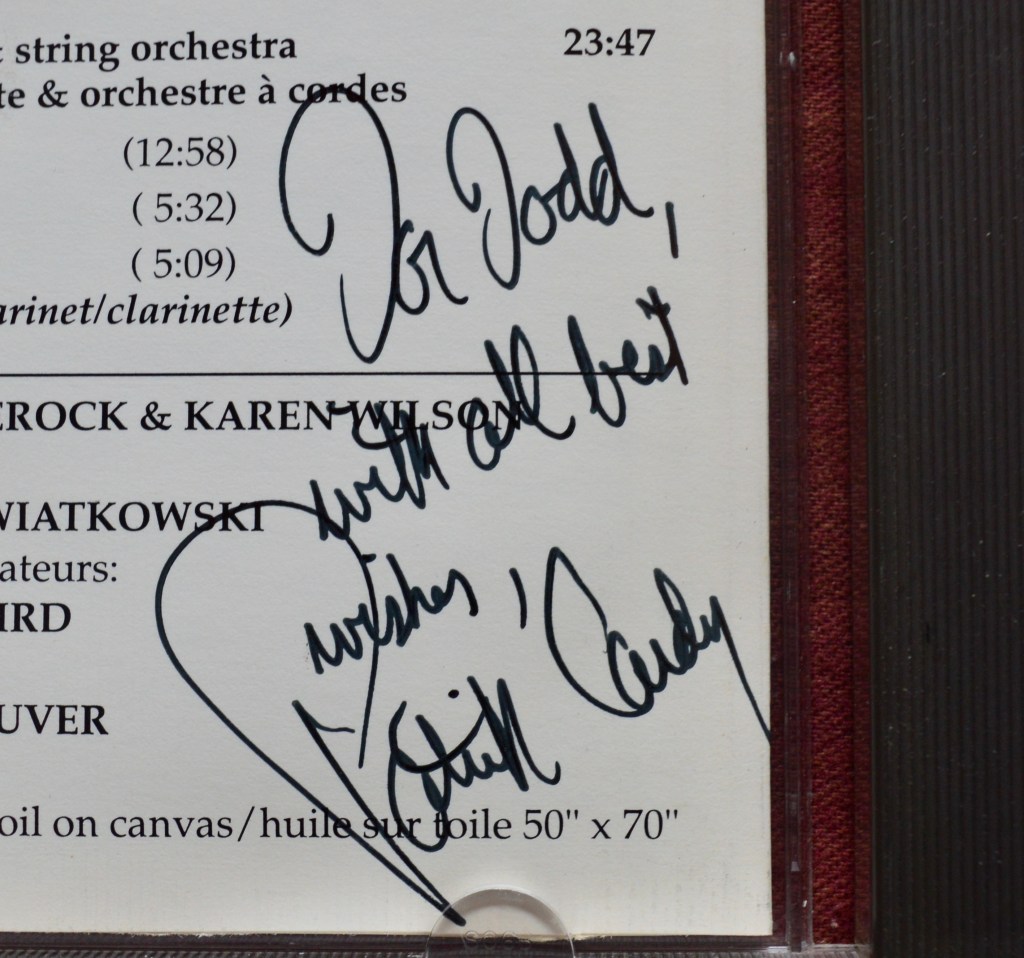 & string orchestra 23:47
te & orchestre à cordes
(12:58)
( 5:32)
( 5:09)
arinet/clarinette)
For Todd,
with all best
wishes,
Patrick Cardy
EROCK & KAREN WILSON
WIATKOWSKI
ateurs:
IRD
UVER
oil on canvas/huile sur toile 50" x 70"